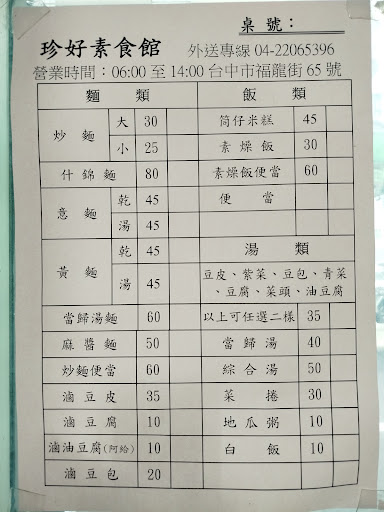 桌號：
珍好素食館 外送專線 04-22065396
營業時間：06:00 至 14:00 台中市福龍街 65 號
麵類 飯類
炒麵 大 30 筒仔米糕 45
小 25 素燥飯 30
什錦麵 80 素燥飯便當 60
意麵 乾 45 便當
湯 45
黃麵 乾 45 湯類
湯 45 豆皮、紫菜、豆包、青菜
、豆腐、菜頭、油豆腐
當歸湯麵 60 以上可任選二樣 35
麻醬麵 50 當歸湯 40
炒麵便當 60 綜合湯 50
滷豆皮 35 菜捲 30
滷豆腐 10 地瓜粥 10
滷油豆腐(阿給) 10 白飯 10
滷豆包 20